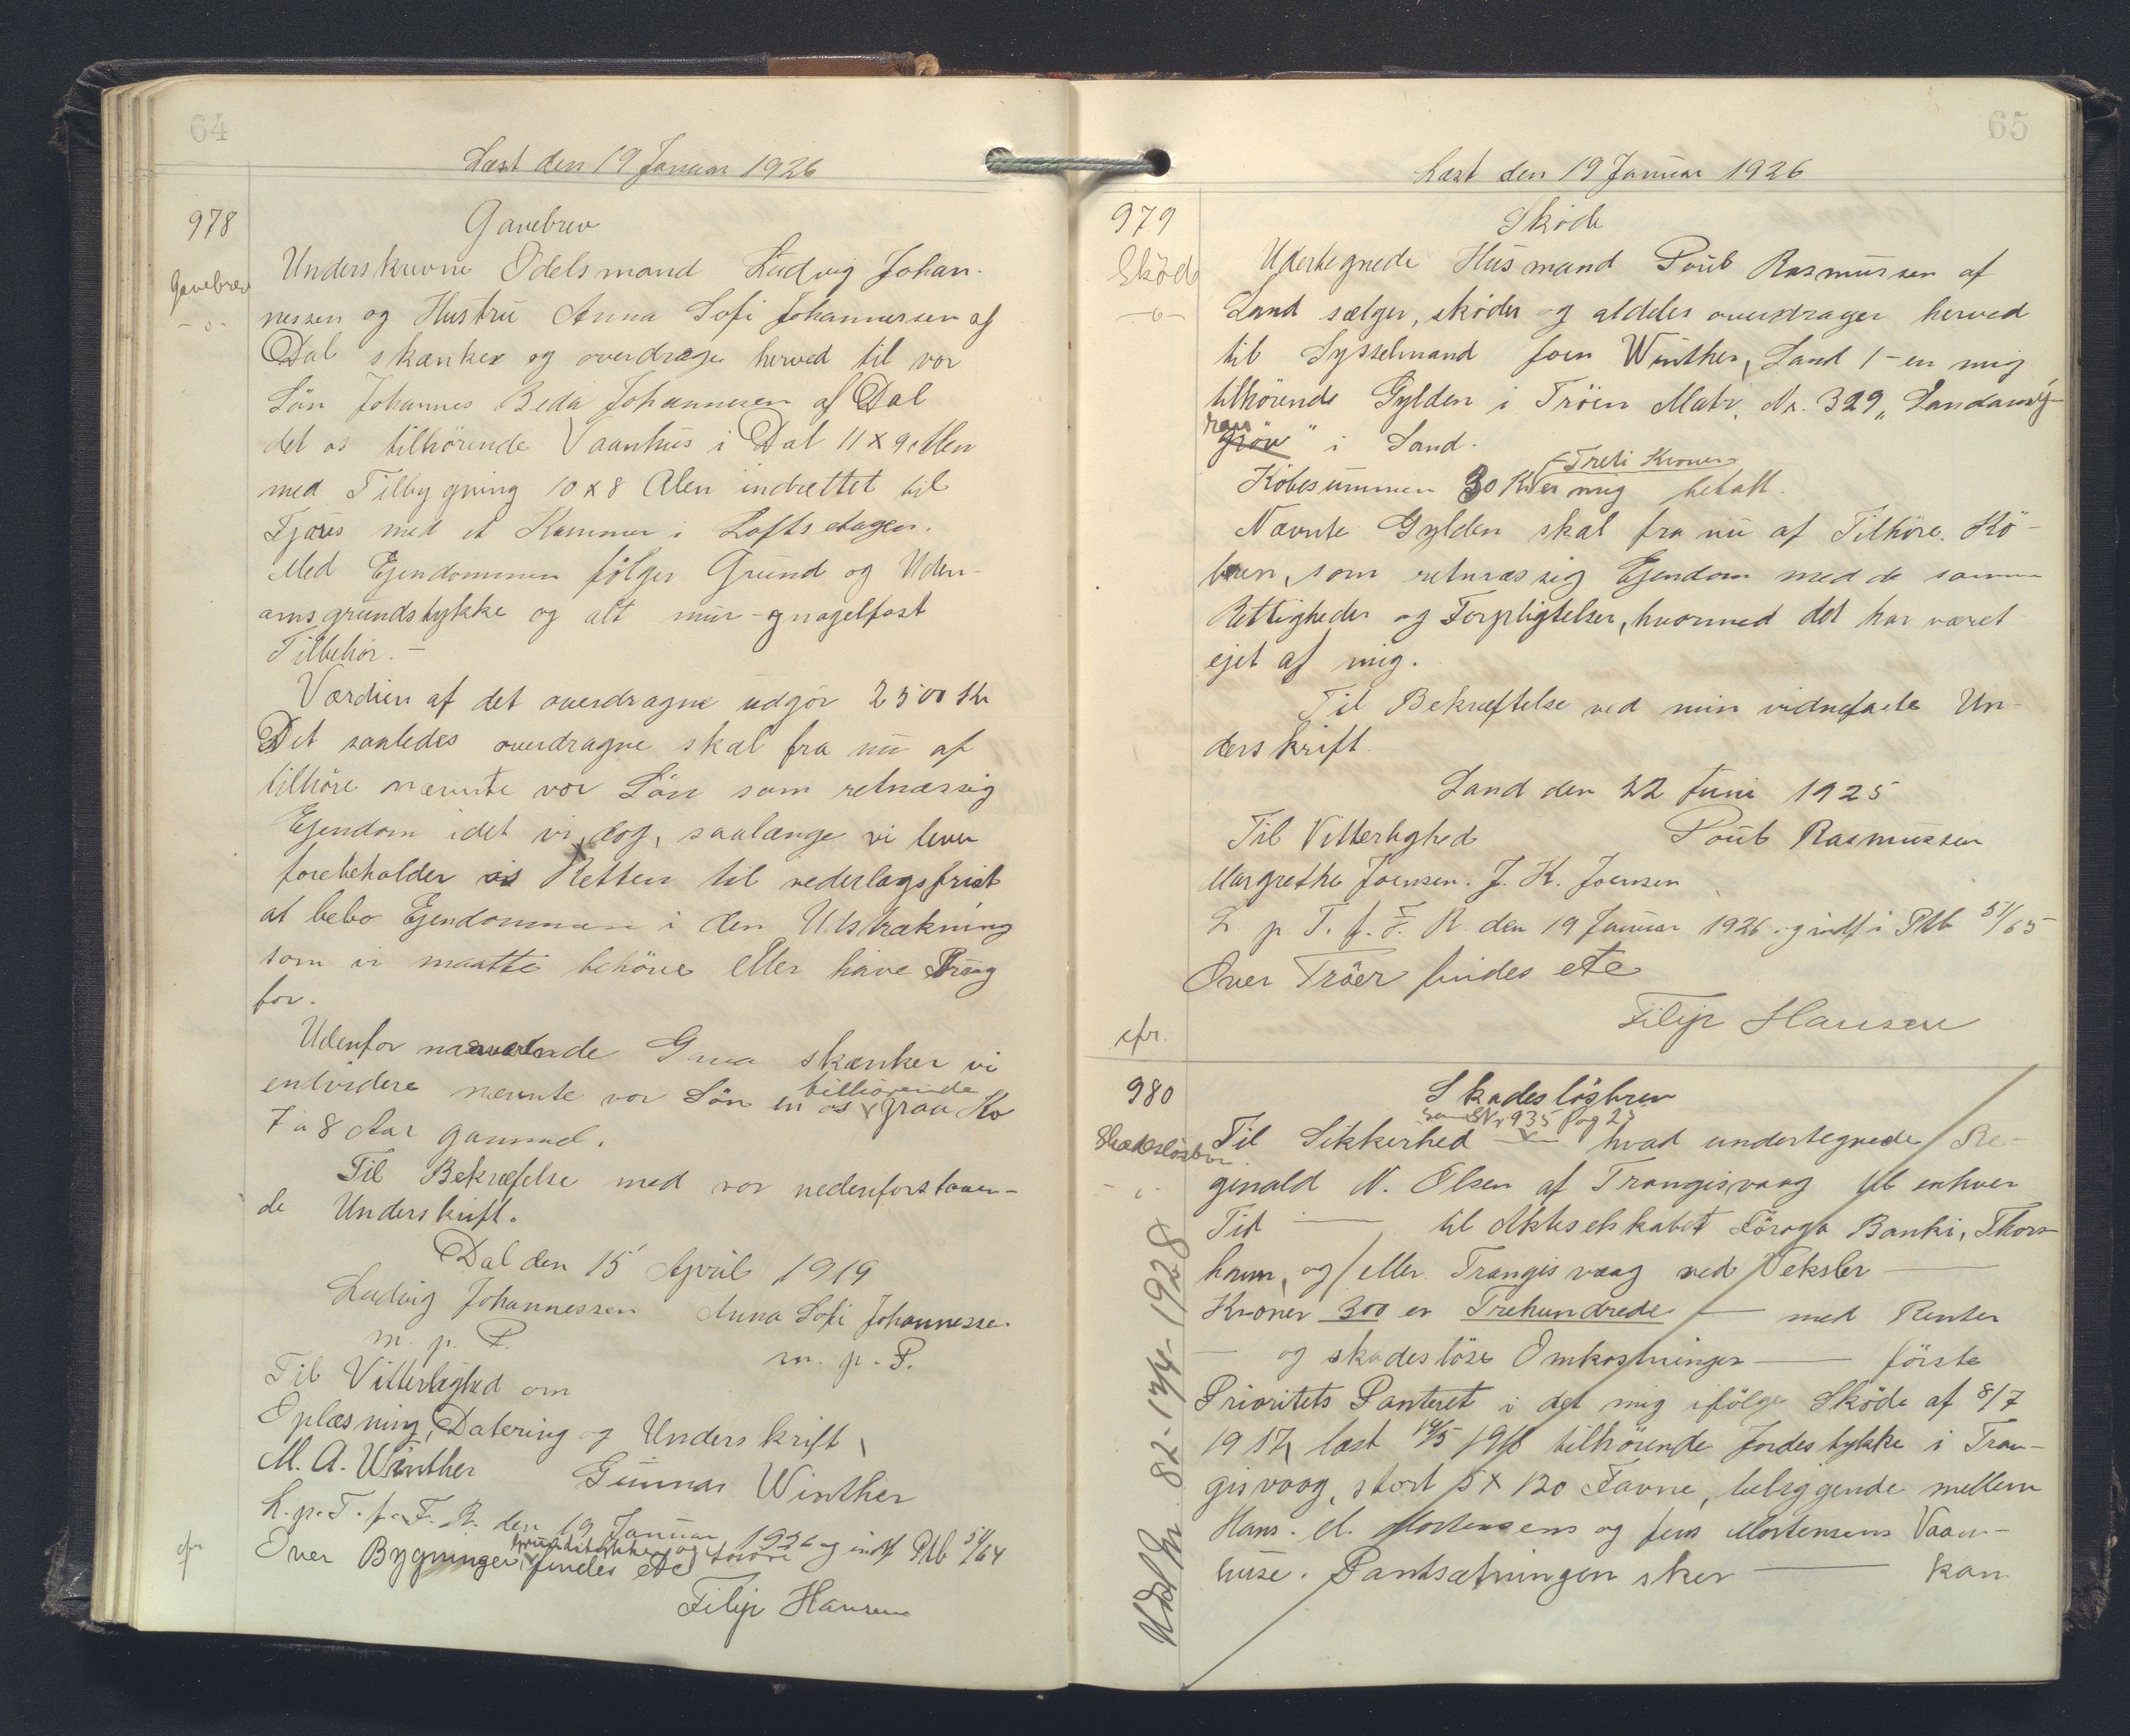 64
Læst den 19 Januar 1926
978
Gavebrev
Gavebrev
Underskrevne Odelsmand Ludvig Johan-
nessen og Hustru Anna Sofi Johannessen af
Dal skænker og overdrage herved til vor
Sön Johannes Beda Johannesen af Dal
det os tilhörende Vaanhus i Dal 11 x 9 Alen
med Tilbygning 10 x 8 Alen indrettet til
Fjøs med et Kammer i Loftsetagen.
Med Ejendommen fölger Grund og Uden-
omsgrundstykke og alt mur- og nagelfast
Tilbehör. -
Værdien af det overdragne udgör 2500 Kr
Det saaledes overdragne skal fra nu af
tilhöre nævnte vor Sön som retmæssig
Ejendom idet vi, dog, saalænge vi lever
forebeholder os Retten til vederlagsfrist
at bebo Ejendommen i den Udstrækning
som vi maatte behöve eller have Brug
for.
Udenfor nærværende Gave skænker vi
endvidere nævnte vor Sön en os tilhörende graa Ko
7 a 8 Aar gammel.
Til Bekræfelse med vor nedenforstaaen-
de Underskrift.
Dal den 15 April 1919
Ludvig Johannessen Anna Sofi Johannesse.
m. p. P. m. p. P.
Til Vitterlighed om
Oplæsning, Datering og Underskrift
M. A. Winther Gunnar Winther
L. p. T. f. F. R. den 19 Januar 1926 og indf Ptb 51/64
Over Bygninger, findes etc
cfr
Filip Hansen
65
Læst den 19 Januar 1926
979
Sköde
Sköde
Udertegnede Husmand Poul Rasmussen af
Sand sælger, sköder og aldeles overdrager herved
til Sysselmand Joen Winther, Sand 1 - en mig
tilhörende Gylden i Tröen Matr. Nr. 329 „Sandamÿ-
ran" i Sand.
Köbesummen 30 Kr - Treti Kroner er mig betalt.
Nævnte Gylden skal fra nu af Tilhöre Kö-
beren, som retmæssig Ejendom med de samme
Rettigheder og Forpligtelser, hvormed det har været
ejet af mig.
Til Bekræftelse ved min vidnefaste Un-
derskrift.
Sand den 22 Juni 1925
Til Vitterlighed Poul Rasmussen
Margrethe Joensen. J. K. Joensen
L. p. T. f. F. R. den 19 Januar 1926 og indf i Ptb 51/65
Over Tröer findes etc
Filip Hansen
cfr.
980
Skadeslösbrev
Skadeslösbrev
Til Sikkerhed som Nr 935 Pag 25 hvad undertegnede Re-
ginald N. Olsen af Trangisvaag til enhver
Tid — til Aktieselskabet Föroya Banki, Thors-
havn, og/eller Trangisvaag ved Veksler —
Kroner 300 er Trehundrede — med Renter
— og skadeslöse Omkostninger — förste
Prioritets Panteret i det mig ifölge Sköde af 8/7
1917, læst 14/5 1918 tilhörende Jordestykke i Tran-
gisvaag, stort 5 x 120 Favne, beliggende mellem
Hans. M. Mortensens og Jens Mortensens Vaan-
huse. Pantsætningen sker — kan
Udsl Nr. 82-17/4-1928